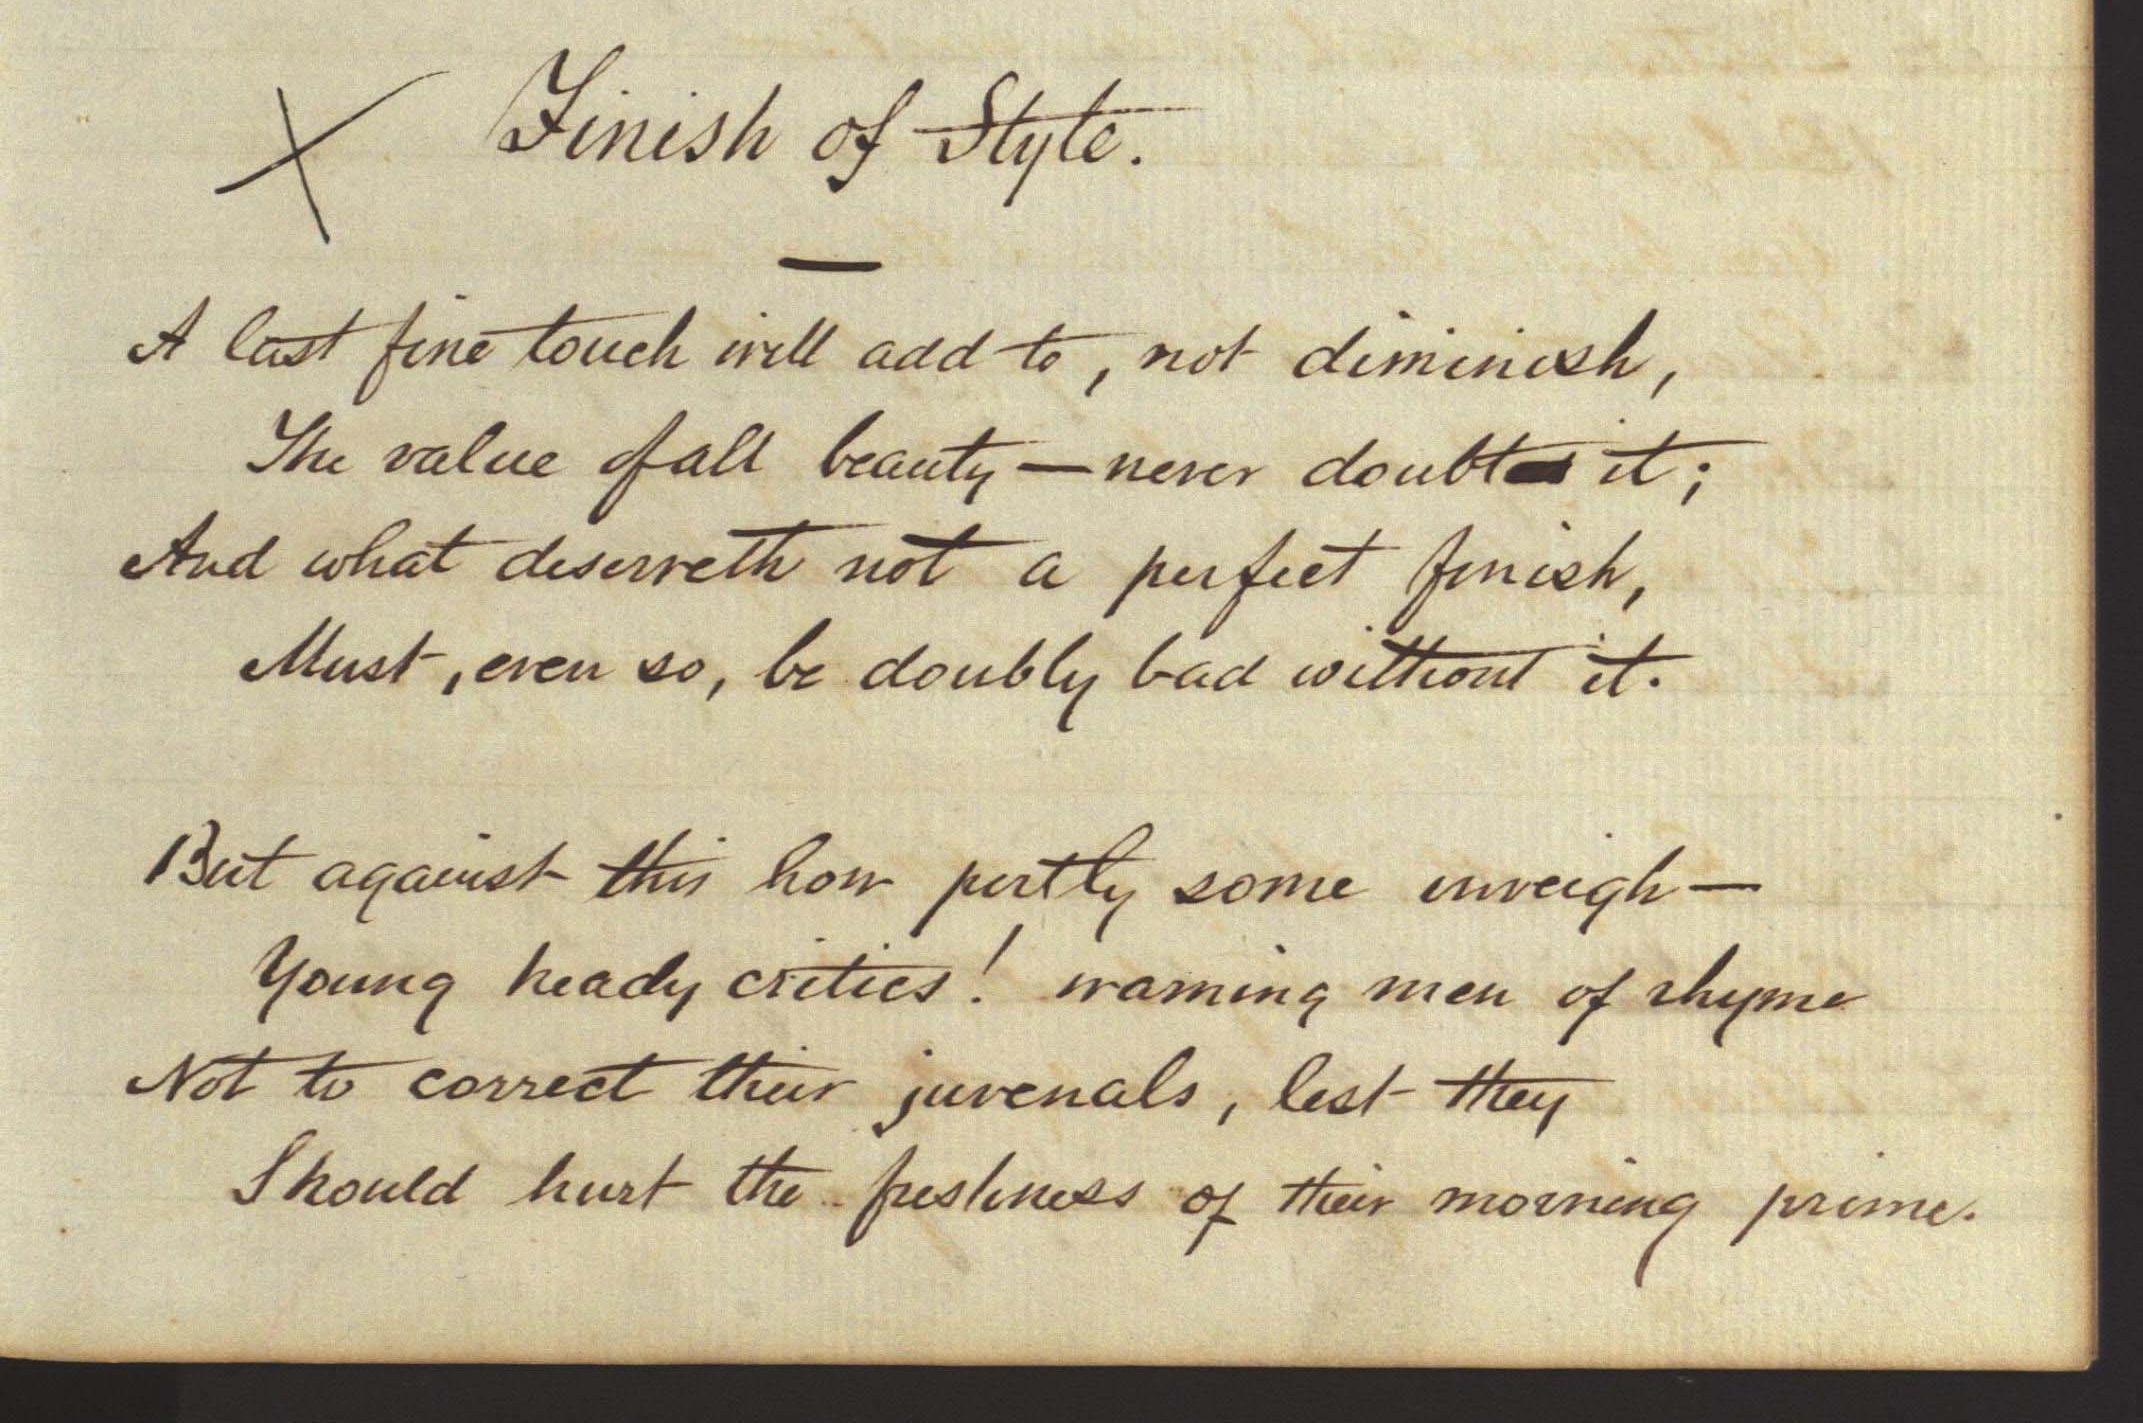 Finish of Style.
A last fine touch will add to, not diminish,
The value of all beauty — never doubt it;
And what deserveth not a perfect finish,
Must, even so, be doubly bad without it.
But against this how pertly some inveigh —
Young heady critics! warning men of rhyme
Not to correct their juvenals, lest they
Should hurt the freshness of their morning prime.